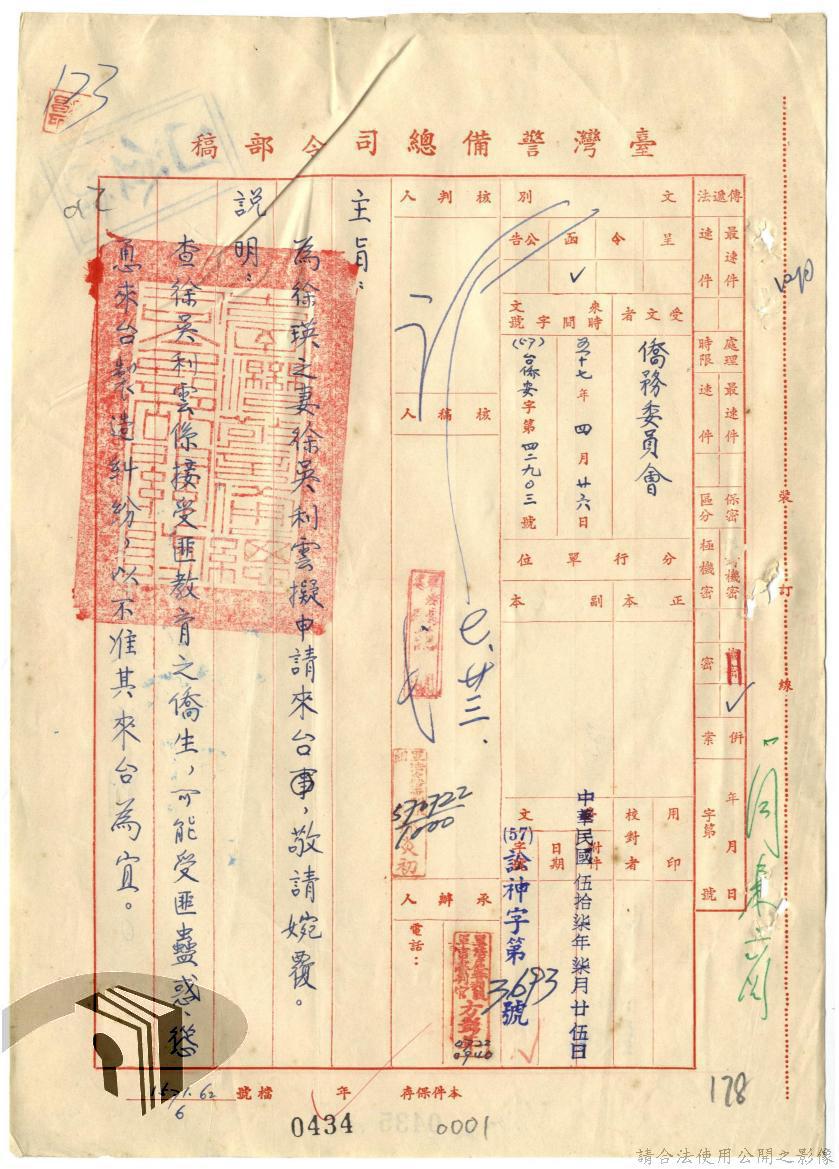 173
臺灣警備總司令部稿
傳遞法
最速件
速件
處理時限
最速件
速件
保密區分
極機密
機密
密
✓
併案
年 月 日
字第 號
文別
呈
令
函
公告
✓
受文者
僑務委員會
來文
時間
五十七年四月廿六日
字號
(57)台僑安字第四二九〇三號
分行單位
正本
副本
用印
校對者
附件
中華民國伍拾柒年柒月廿伍日
發文
日期
字號
(57)諗神字第3693號
核判人
核稿人
七.廿三.
570722
1000
承辦人
電話:
0722
0940
主旨:
為徐瑛之妻徐吳利雲擬申請來台事,敬請婉覆。
說明:
查徐吳利雲係接受匪教育之僑生,可能受匪蠱惑、慫
恿來台製造糾紛,以不准其來台為宜。
裝
訂
線
本件保存 年
檔號
1571.62
6
0434
0001
178
請合法使用公開之影像